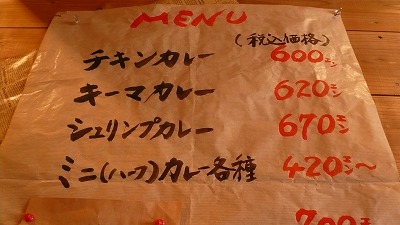 MENU
(税込価格)
チキンカレー 600モン
キーマカレー 620モン
シュリンプカレー 670モン
ミニ(ハーフ)カレー各種 420モン〜
700